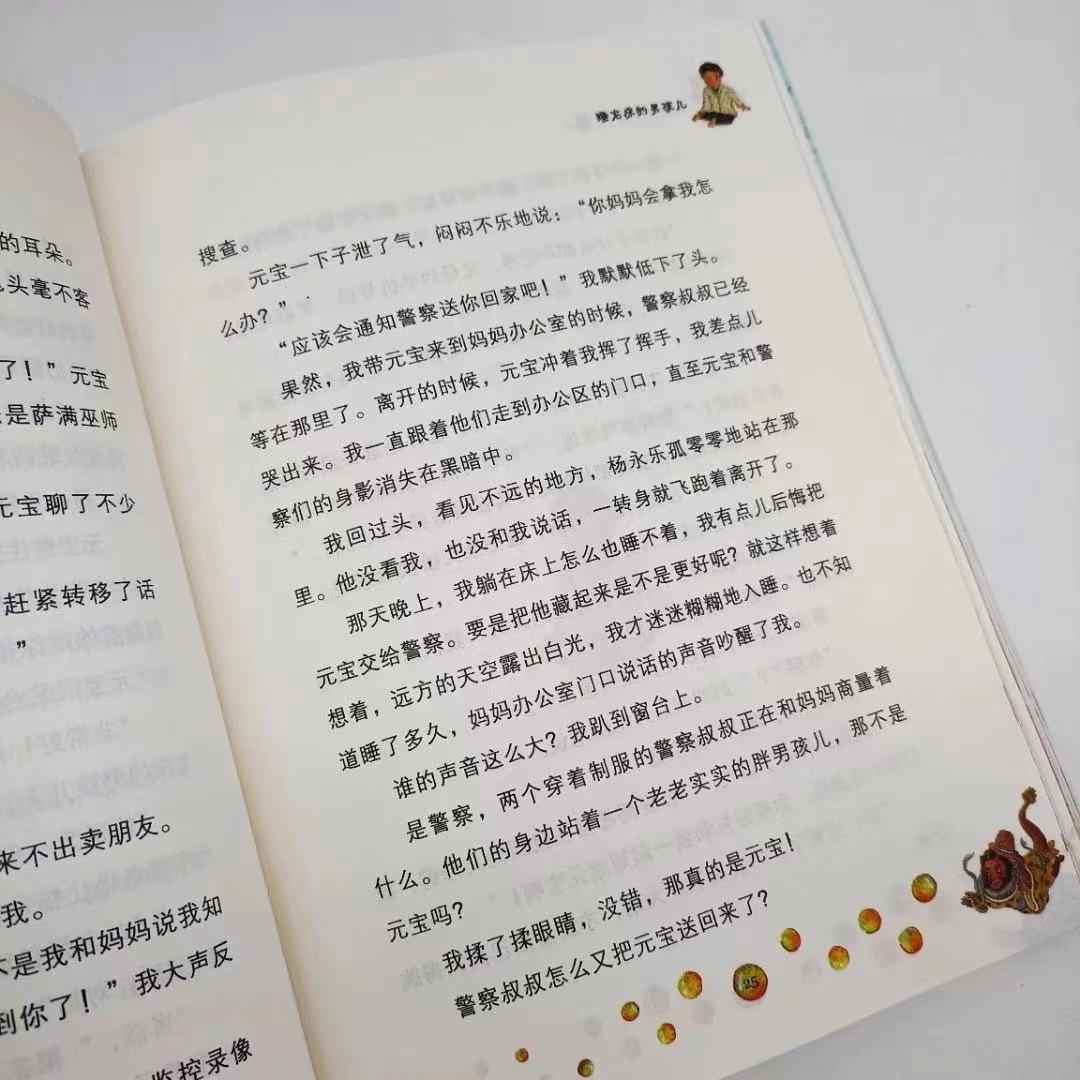 的耳朵。
头毫不客
了！”元宝
是萨满巫师
元宝聊了不少
赶紧转移了话
”
来不出卖朋友。
我。
是我和妈妈说我知
到你了！”我大声反
监控录像
睡龙床的男孩儿
搜查。
元宝一下子泄了气，闷闷不乐地说：“你妈妈会拿我怎
么办？”
“应该会通知警察送你回家吧！”我默默低下了头。
果然，我带元宝来到妈妈办公室的时候，警察叔叔已经
等在那里了。离开的时候，元宝冲着我挥了挥手，我差点儿
哭出来。我一直跟着他们走到办公区的门口，直至元宝和警
察们的身影消失在黑暗中。
我回过头，看见不远的地方，杨永乐孤零零地站在那
里。他没看我，也没和我说话，一转身就飞跑着离开了。
那天晚上，我躺在床上怎么也睡不着，我有点儿后悔把
元宝交给警察。要是把他藏起来是不是更好呢？就这样想着
想着，远方的天空露出白光，我才迷迷糊糊地入睡。也不知
道睡了多久，妈妈办公室门口说话的声音吵醒了我。
谁的声音这么大？我趴到窗台上。
是警察，两个穿着制服的警察叔叔正在和妈妈商量着
什么。他们的身边站着一个老老实实的胖男孩儿，那不是
元宝吗？
我揉了揉眼睛，没错，那真的是元宝！
警察叔叔怎么又把元宝送回来了？
25